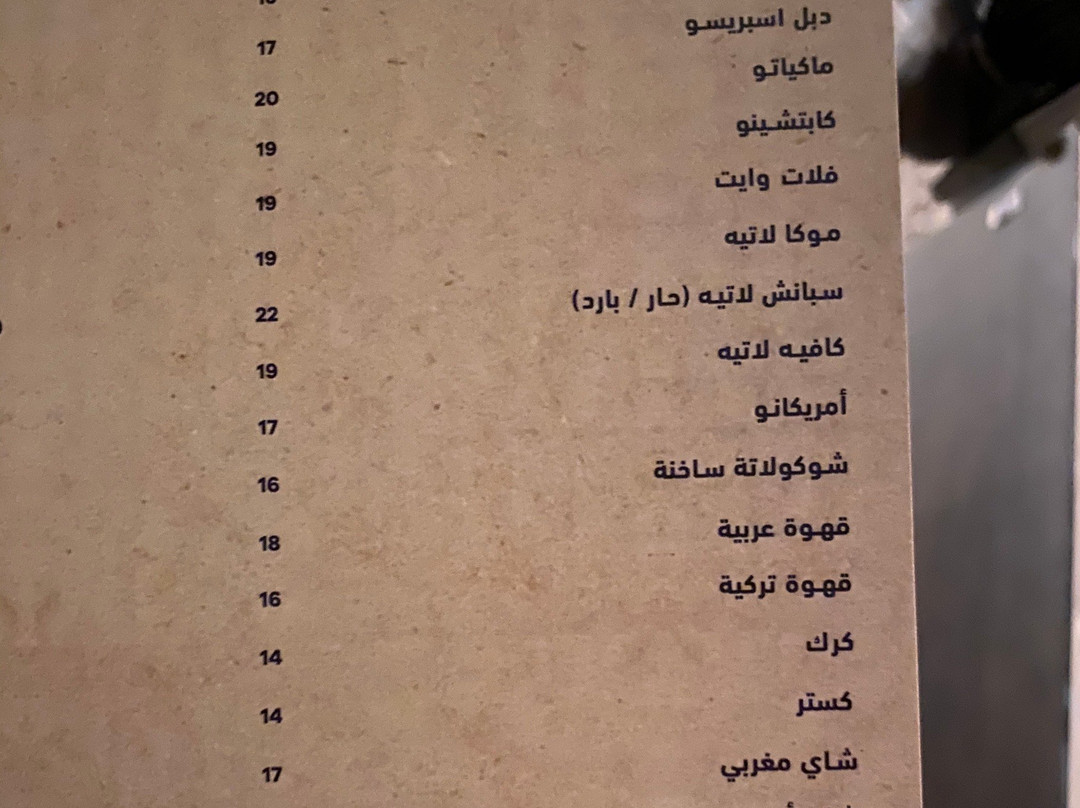 دبل اسبريسو 17
ماكياتو 20
كابتشينو 19
فلات وايت 19
موكا لاتيه 19
سبانش لاتيه (حار / بارد) 22
كافيه لاتيه 19
أمريكانو 17
شوكولاتة ساخنة 16
قهوة عربية 18
قهوة تركية 16
كرك 14
كستر 14
شاي مغربي 17